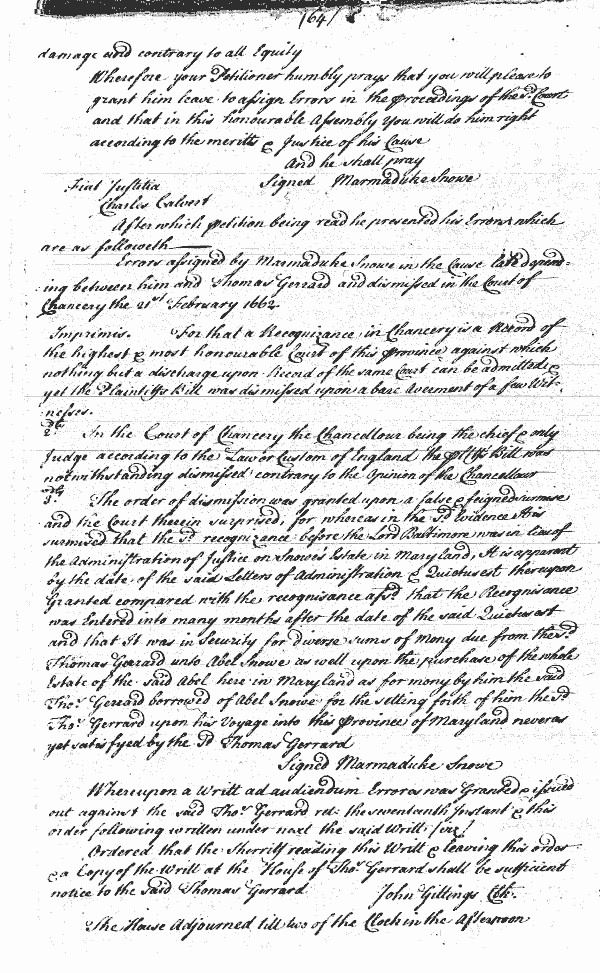 164/
damage and contrary to all Equity
Wherefore your Petitioner humbly prays that you will please to
grant him leave to assign Errors in the proceedings of the sd. Court
and that in this honourable Assembly You will do him right
according to the meritts & Justice of his Cause
And he shall pray
Fiat Justitia Signed Marmaduke Snowe
Charles Calvert
After which petition being read he presented his Errors which
are as followeth
Errors assigned by Marmaduke Snowe in the Cause late depend-
ing between him and Thomas Gerrard and dismissed in the Court of
Chancery the 21st February 1662
Imprimis. For that a Recognizance in Chancery is a Record of
the highest & most honourable Court of this Province against which
nothing but a discharge upon Record of the same Court can be admitted &
yet the Plaintiffs Bill was dismissed upon a bare Averment of a few Wit-
nesses.
2dly In the Court of Chancery the Chancellour being the chief & only
Judge according to the Law or Custom of England the pltfs Bill was
notwithstanding dismissed contrary to the Opinion of the Chancellour
3dly The order of dismission was granted upon a false & feigned surmise
and the Court therein surprised, for whereas in the sd. Evidence it is
surmised that the sd. recognizance before the Lord Baltimore was in lieu of
the Administration of Justice on Snowes Estate in Maryland, It is apparent
by the date of the said Letters of Administration & Quietus est thereupon
Granted compared with the recognisance afsd. that the Recognisance
was Entered into many months after the date of the said Quietus est
and that It was in Security for Diverse sums of Mony due from the sd.
Thomas Gerrard unto Abel Snowe as well upon the purchase of the whole
Estate of the said Abel here in Maryland as for mony by him the said
Thos. Gerrard borrowed of Abel Snowe for the setting forth of him the sd.
Thos. Gerrard upon his Voyage into this Province of Maryland never as
yet satisfyed by the sd Thomas Gerrard
Signed Marmaduke Snowe
Whereupon a Writt ad audiendum Errores was Granted & issued
out against the said Thos. Gerrard ret: the seventeenth Instant & this
order following written under next the said Writt /viz/
Ordered that the Sherriff reading this Writt & leaving this order
& a Copy of the Writt at the House of Thos. Gerrard shall be sufficient
notice to the said Thomas Gerrard John Gittings Clk.
The House Adjourned till two of the Clock in the Afternoon